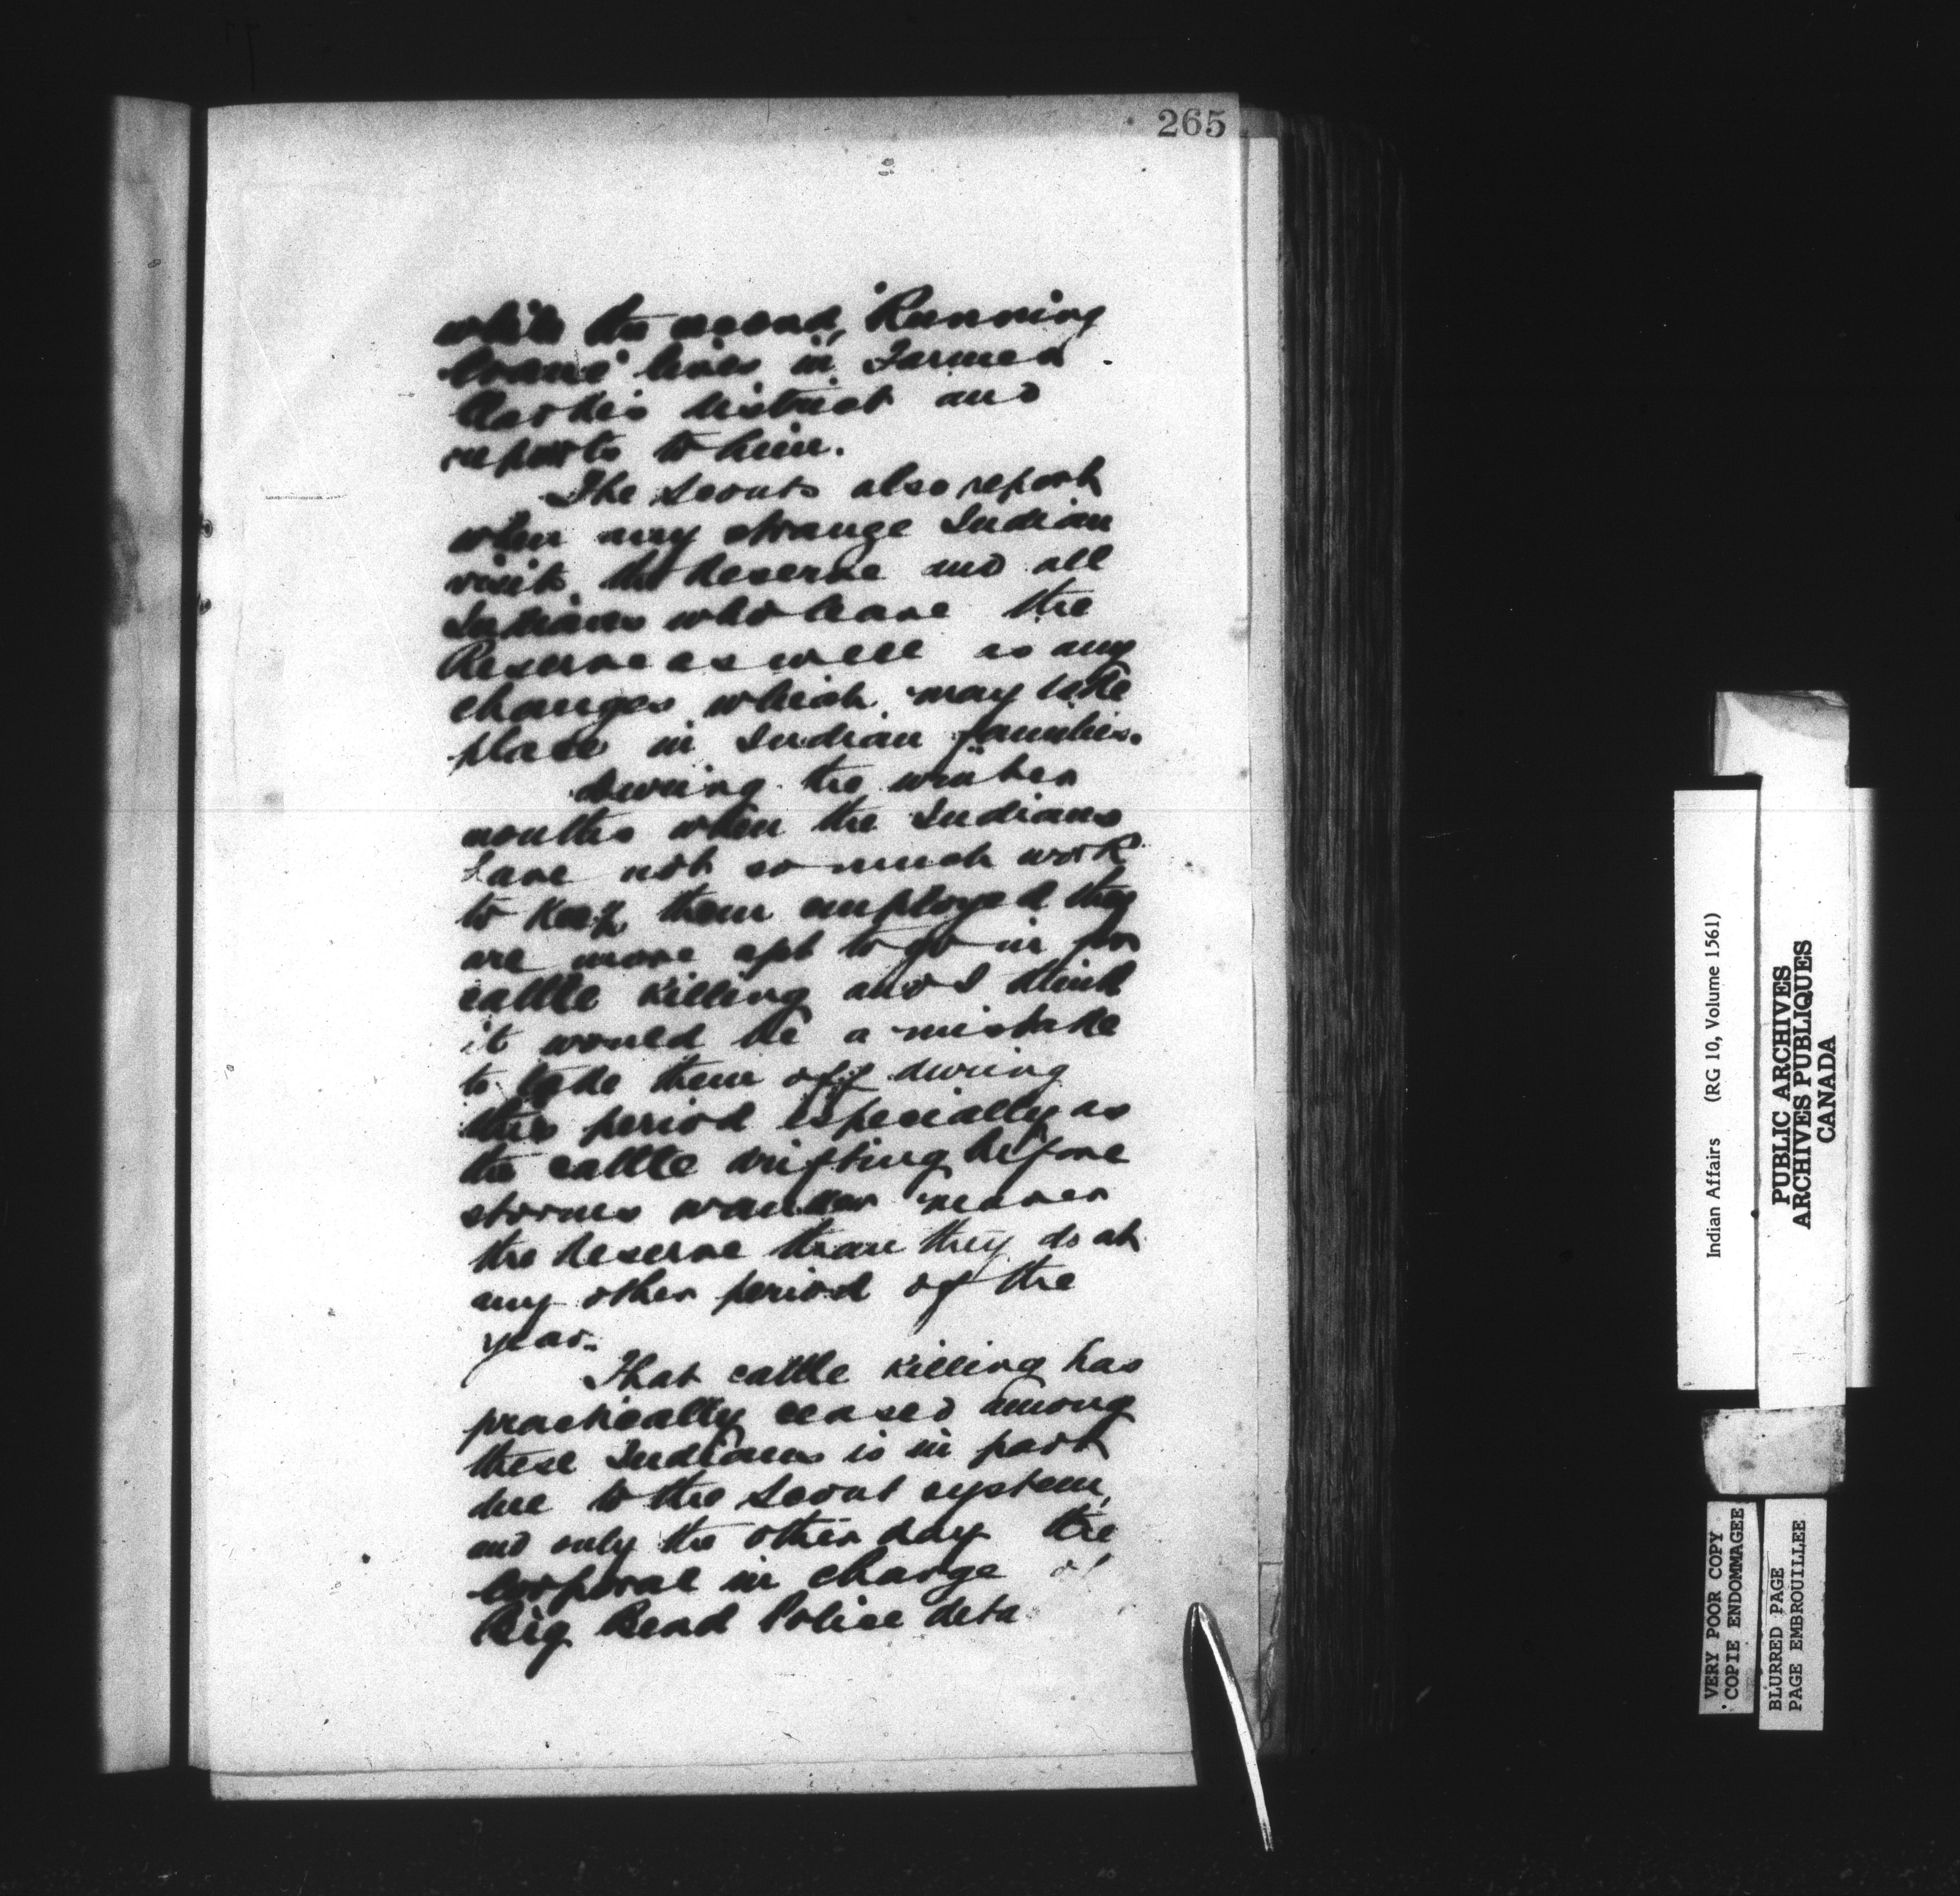 265
while the second, 'Running
Crane' lives in Farmer
Clarke's district and
reports to him.
The Scouts also report
when any strange Indian
visits the Reserve and all
Indians who leave the
Reserve as well as any
changes which may take
place in Indian families.
During the winter
months when the Indians
have not so much work
to keep them employed they
are more apt to go in for
cattle killing and I think
it would be a mistake
to take them off during
this period especially as
the cattle drifting before
storms wander nearer
the Reserve than they do at
any other period of the
year.
That cattle killing has
practically ceased among
these Indians is in part
due to the Scout system,
and only the other day the
Corporal in charge of
Big Bend Police deta
Indian Affairs (RG 10, Volume 1561)
PUBLIC ARCHIVES
ARCHIVES PUBLIQUES
CANADA
VERY POOR COPY
COPIE ENDOMMAGEE
BLURRED PAGE
PAGE EMBROUILLEE